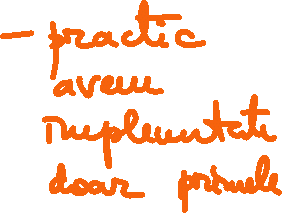 - practic
avem
implementate
doar primele